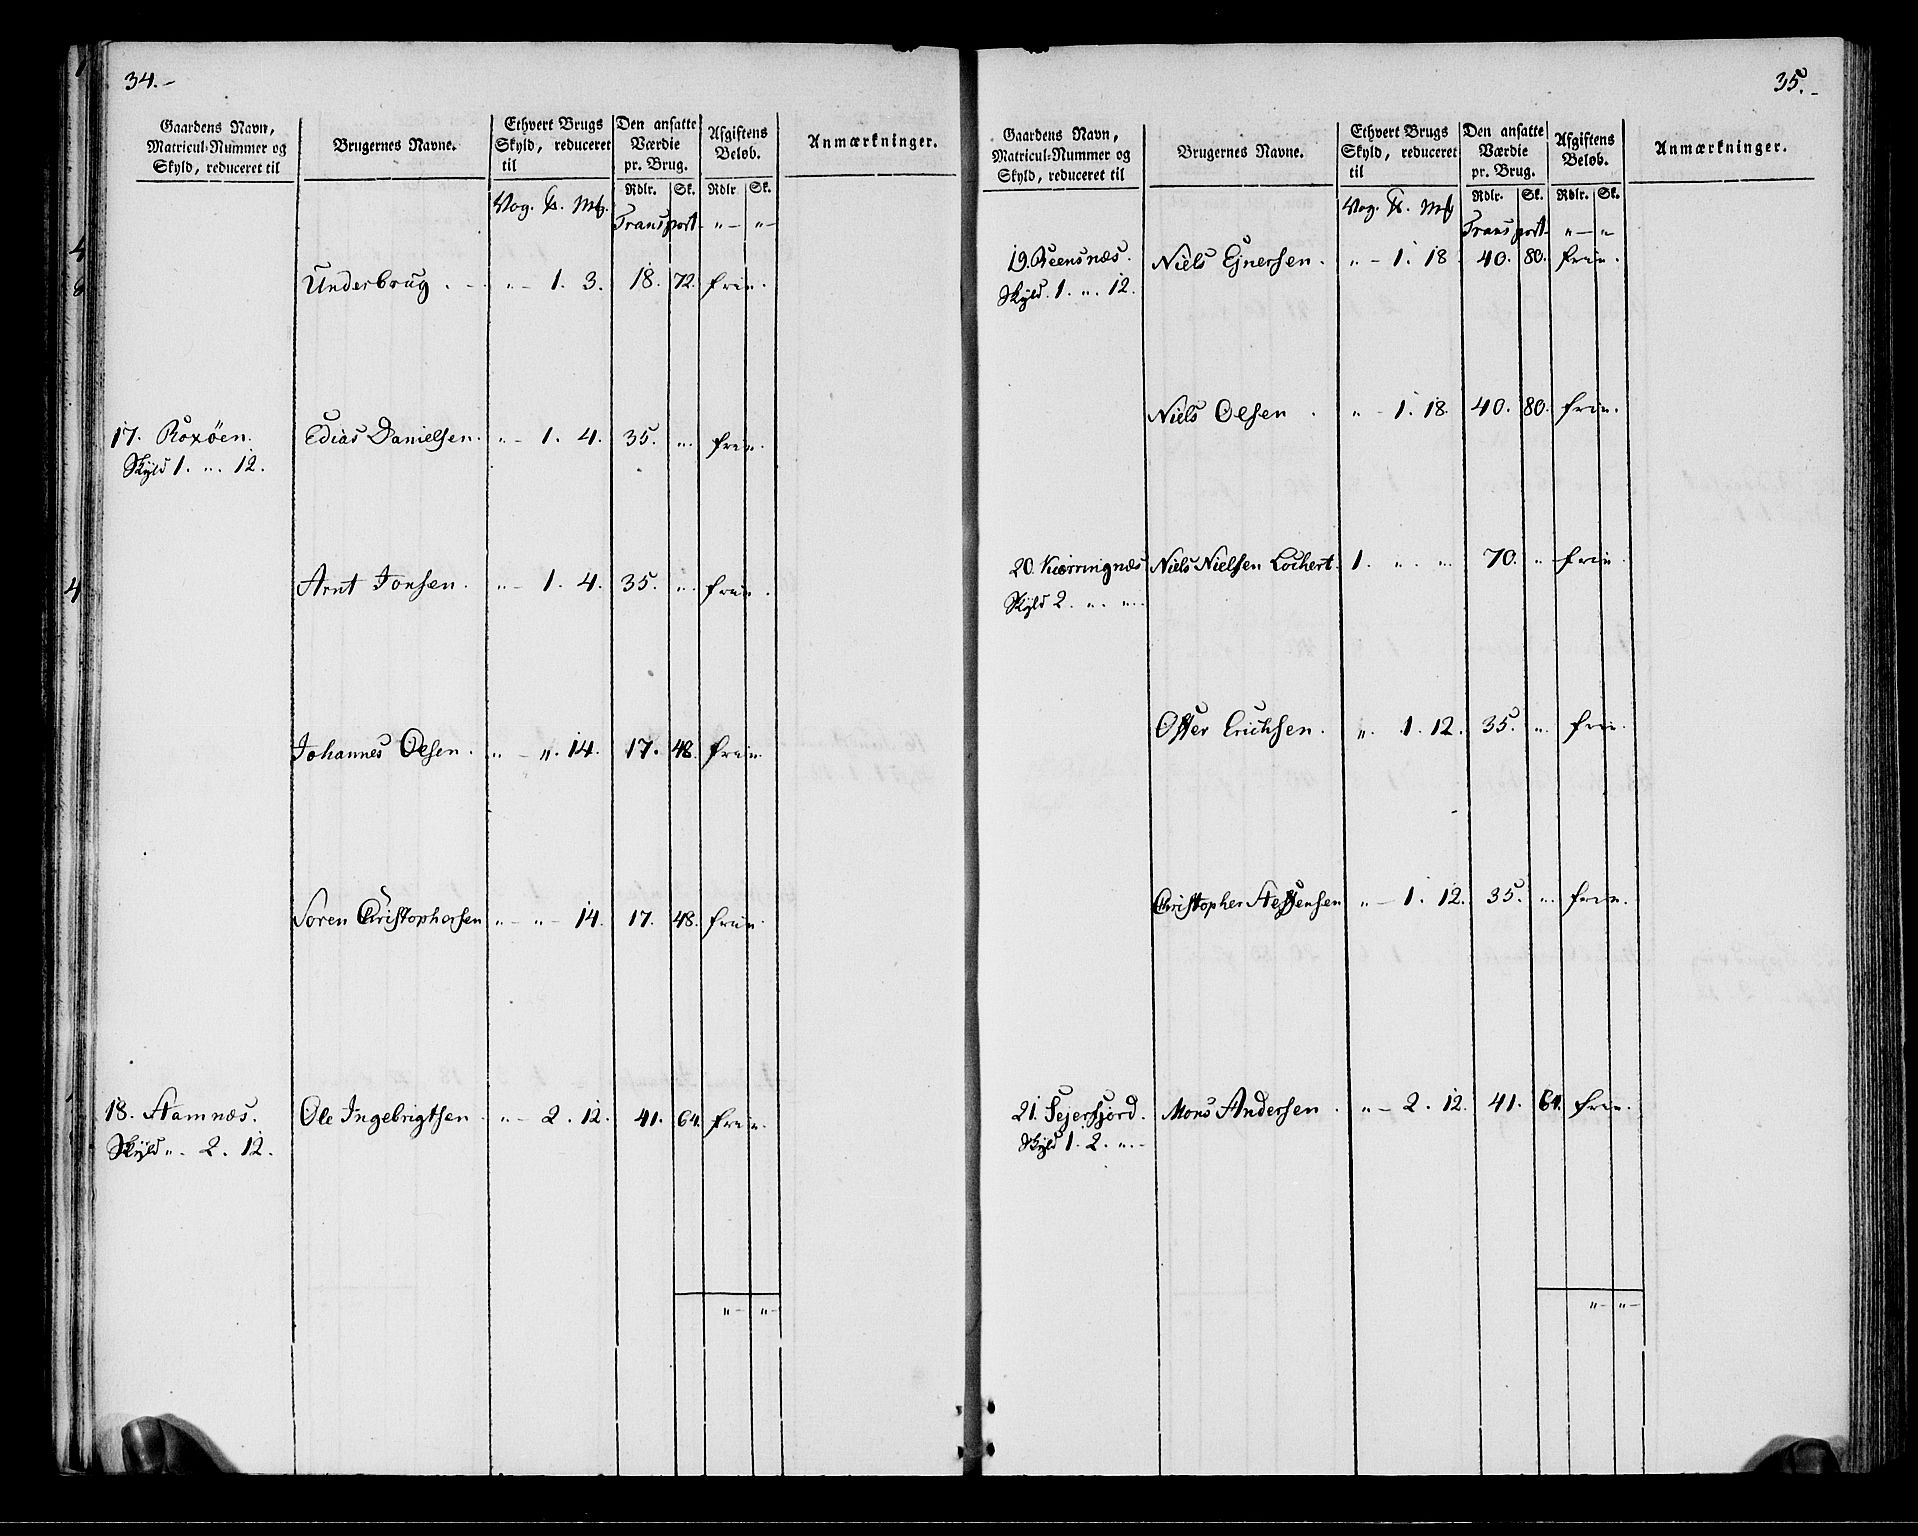 34.-
Gaardens Navn, Matricul-Nummer og Skyld, reduceret til | Brugernes Navne. | Ethvert Brugs Skyld, reduceret til | Den ansatte Værdie pr. Brug. | Afgiftens Beløb. | Anmærkninger.
Vog. | Rdlr. Sk. | Rdlr. Sk.
Transport „ — „ —
Underbrug . - „ — 1. 3. 18. 72. frie.
17. Roxöen. Edias Danielsen. „ — 1. 4. 35. „. frie.
Skyld 1. „. 12.
Arnt Jonsen. „ — 1. 4. 35. „. frie.
Johannes Olsen. „ — „. 14. 17. 48. frie.
Soren Christophersen „ — „ — 14. 17. 48. frie.
18. Stamnæs. Ole Ingebrigtsen. „ — 2. 12. 41. 64. frie.
Skyld „. 2. 12.
„ — „ —
35.-
Gaardens Navn, Matricul-Nummer og Skyld, reduceret til | Brugernes Navne. | Ethvert Brugs Skyld, reduceret til | Den ansatte Værdie pr. Brug. | Afgiftens Beløb. | Anmærkninger.
Vog. | Rdlr. Sk. | Rdlr. Sk.
Transport „ — „
19. Reensnæs. Niels Ejnersen. „ — 1. 18. 40. 80. frie.
Skyld. 1. „. 12.
Niels Olsen . „ — 1. 18. 40. 80. frie.
20. Kiærringnæs Niels Nielsen Lochert. 1. „. „. 70. „ frie.
Skyld 2. „. „.
Offer Erichsen. „. 1. 12. 35. „. frie.
Christopher Steffensen „ — 1. 12. 35. „. frie.
21. Sejersfjord. Mons Andersen. „ — 2. 12. 41. 64. frie.
Skyld 1. 2. „. -
„ — „ —